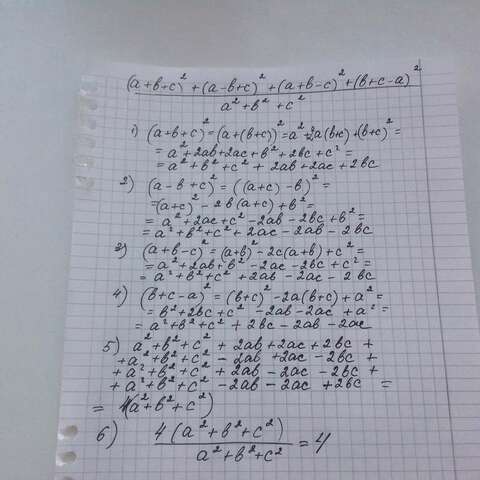 (a+b+c)² + (a-b+c)² + (a+b-c)² + (b+c-a)²
a² + b² + c²
1) (a+b+c)² = (a+(b+c))² = a² + 2a(b+c) + (b+c)² =
= a² + 2ab + 2ac + b² + 2bc + c² =
= a² + b² + c² + 2ab + 2ac + 2bc
2) (a-b+c)² = ((a+c)-b)² =
= (a+c)² - 2b(a+c) + b² =
= a² + 2ac + c² - 2ab - 2bc + b² =
= a² + b² + c² + 2ac - 2ab - 2bc
3) (a+b-c)² = (a+b)² - 2c(a+b) + c² =
= a² + 2ab + b² - 2ac - 2bc + c² =
= a² + b² + c² + 2ab - 2ac - 2bc
4) (b+c-a)² = (b+c)² - 2a(b+c) + a² =
= b² + 2bc + c² - 2ab - 2ac + a² =
= a² + b² + c² + 2bc - 2ab - 2ac
5) a² + b² + c² + 2ab + 2ac + 2bc +
+ a² + b² + c² - 2ab + 2ac - 2bc +
+ a² + b² + c² + 2ab - 2ac - 2bc +
+ a² + b² + c² - 2ab - 2ac + 2bc =
= 4(a² + b² + c²)
6) 4(a² + b² + c²)
a² + b² + c² = 4